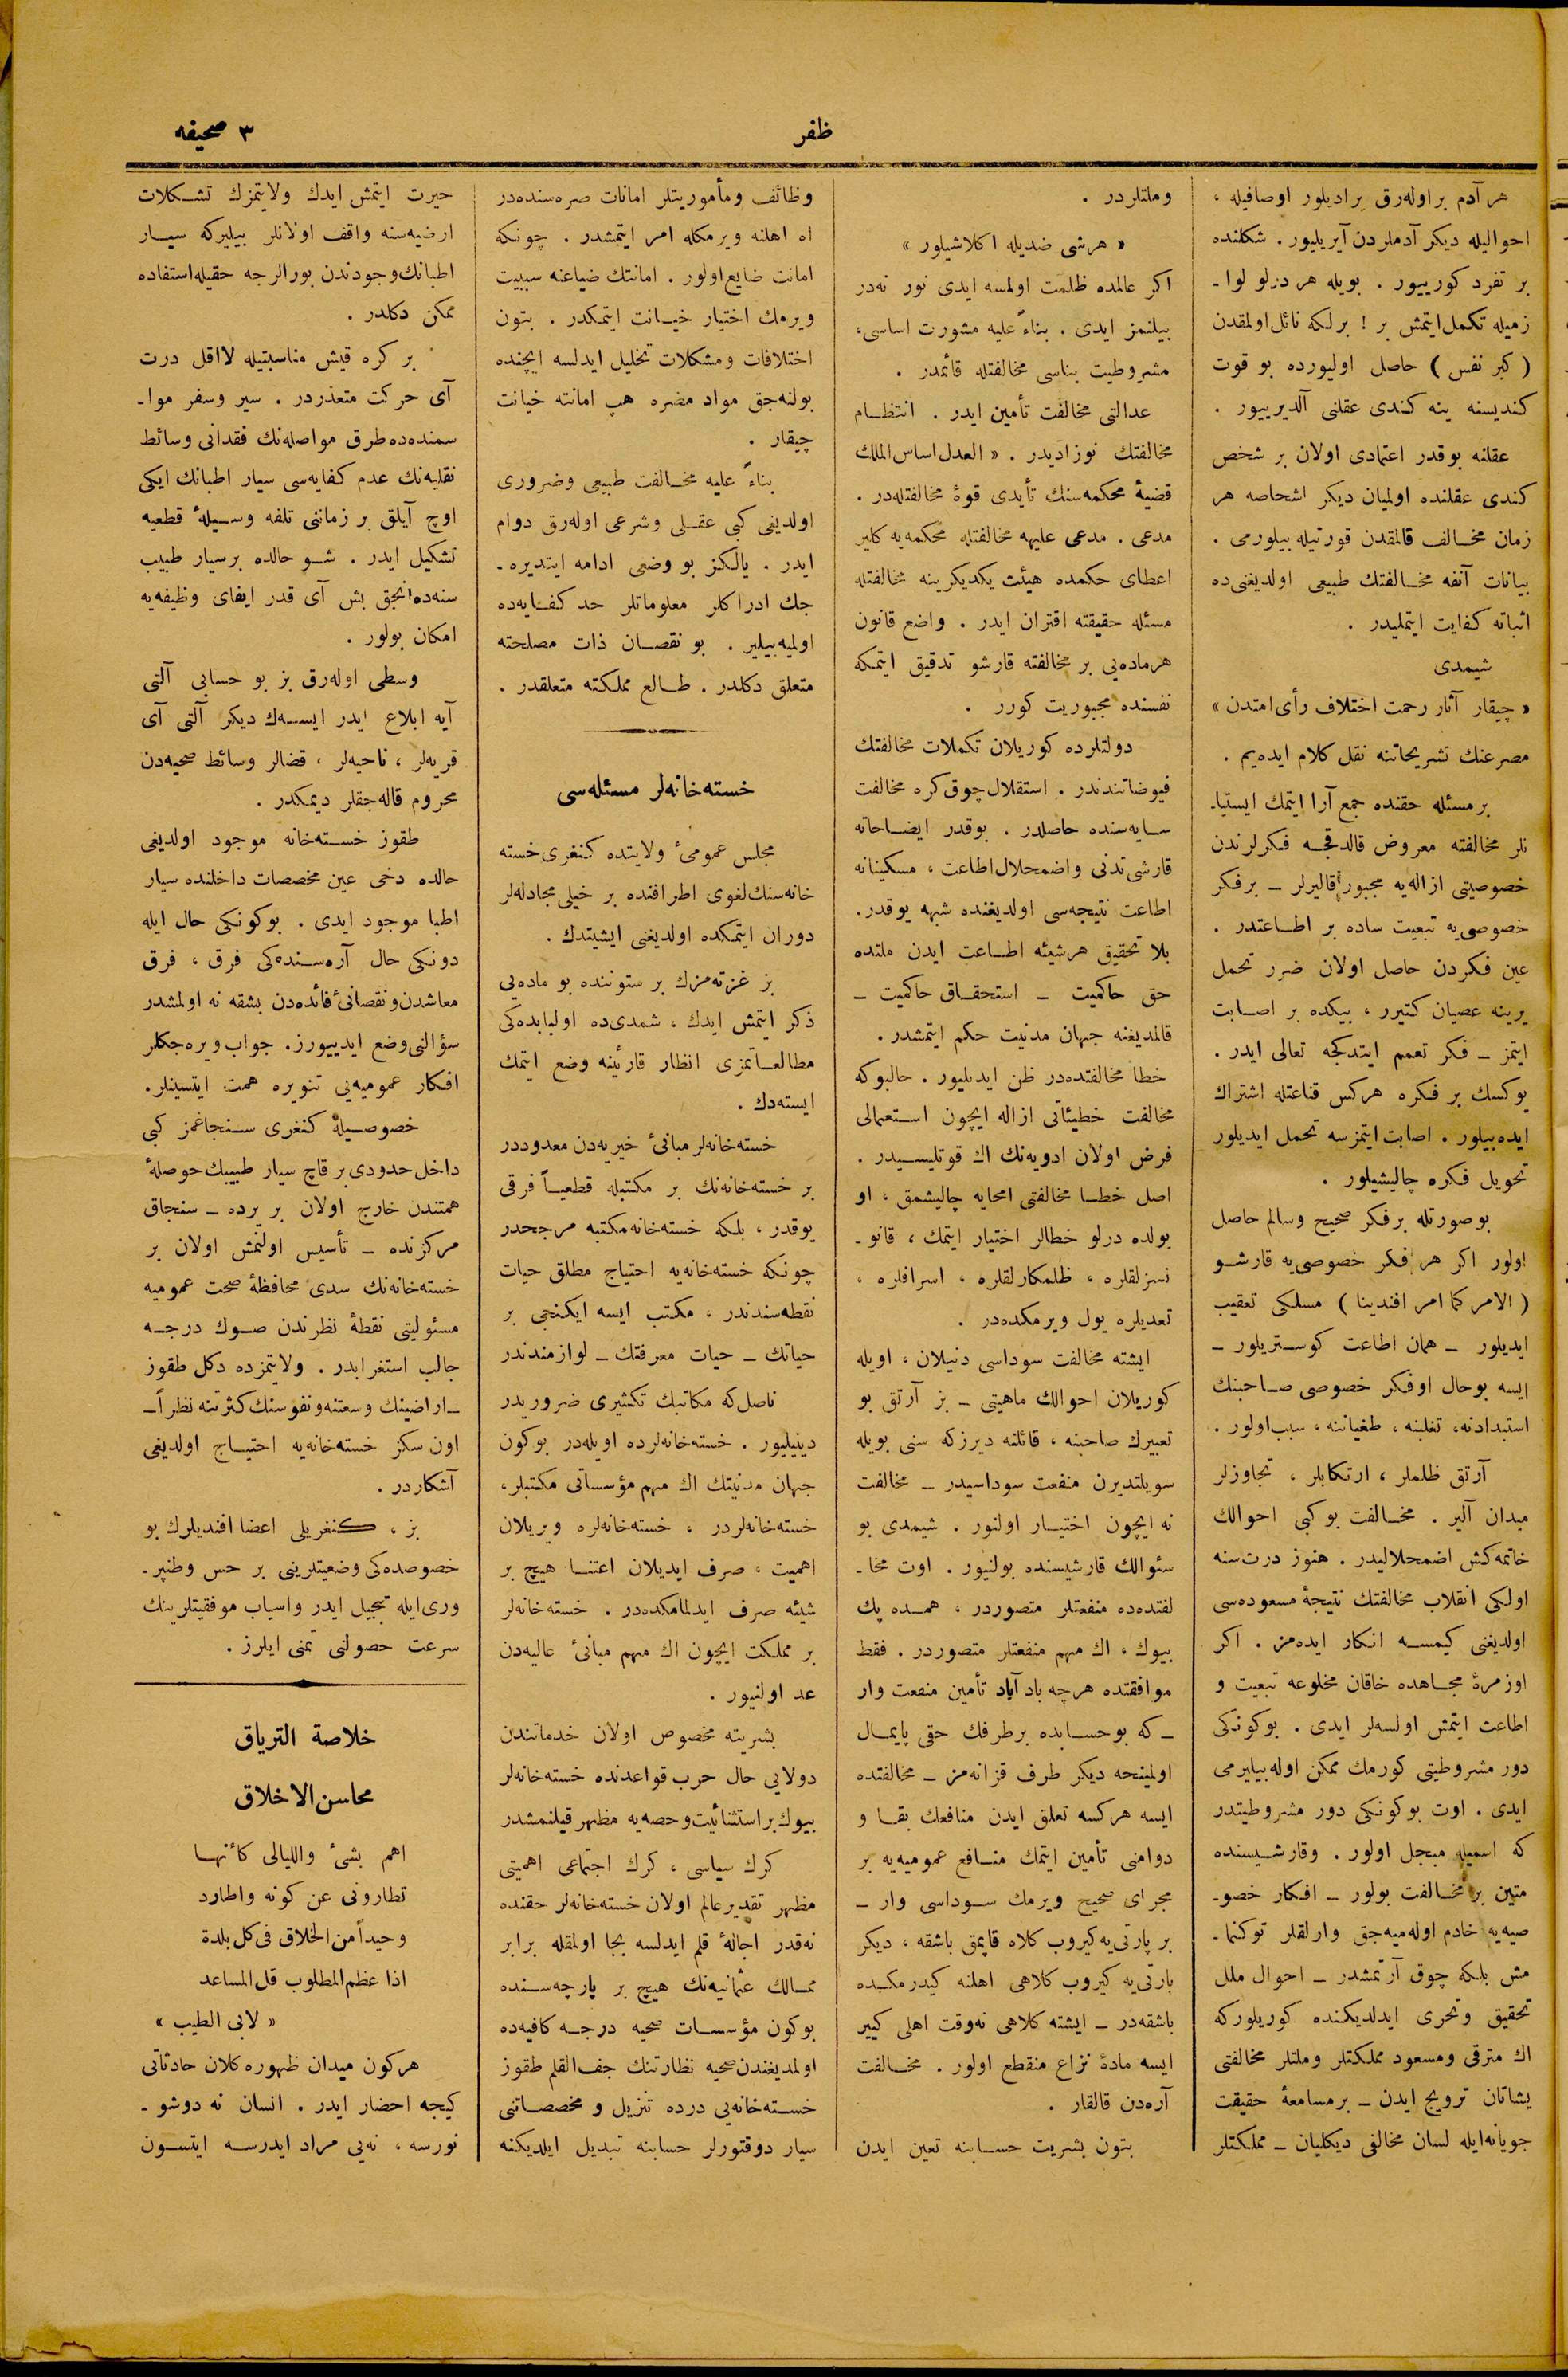 ٣ صحيفه
ظفر
هر آدم بر اوله‌رق براديلور اوصافيله ،
احواليله ديكر آدملردن آيريليور . شكلنده
بر تفرد كورييور . بويله هر درلو لوا ـ
زميله تكمل ايتمش بر ! برلكه نائل اولمقدن
( كبر نفس ) حاصل اوليورده بو قوت
كنديسنه ينه كندى عقلنى آلديرييور .
عقلنه بوقدر اعتمادى اولان بر شخص
كندى عقلنده اولميان ديكر اشخاصه هر
زمان مخالف قالمقدن قورتيله بيلورمى .
بيانات آنفه مخالفتك طبيعى اولديغنى‌ده
اثباته كفايت ايتمليدر .
شيمدى
« چيقار آثار رحمت اختلاف رأى امتدن »
مصرعنك تشريحاتنه نقل كلام ايده‌يم .
بر مسئله حقنده جمع آرا ايتمك ايستيا ـ
نلر مخالفته معروض قالدقجه فكرلرندن
خصوصيتى ازاله‌يه مجبوراً قاليرلر ـ بر فكر
خصوصى‌يه تبعيت ساده بر اطاعتدر .
عين فكردن حاصل اولان ضرر تحمل
يرينه عصيان كتيرر ، بيكده بر اصابت
ايتمز ـ فكر تعمم ايتدكجه تعالى ايدر .
يوكسك بر فكره هركس قناعتله اشتراك
ايده بيلور . اصابت ايتمزسه تحمل ايديلور
تحويل فكره چاليشيلور .
بو صورتله بر فكر صحيح وسالم حاصل
اولور اكر هر فكر خصوصى‌يه قارشو
( الامر كما امر افندينا ) مسلكى تعقيب
ايديلور ـ همان اطاعت كوستريلور ـ
ايسه بو حال اوفكر خصوصى صاحبنك
استبدادنه ، تغلبنه ، طغياننه ، سبب اولور .
آرتق ظلملر ، ارتكابلر ، تجاوزلر
ميدان آلير . مخالفت بوكبى احوالك
خاتمه‌كش اضمحلاليدر . هنوز درت سنه
اولكى انقلاب مخالفتك نتيجهٔ مسعوده‌سى
اولديغنى كيمسه انكار ايده‌مز . اكر
اوزمرهٔ مجاهده خاقان مخلوعه تبعيت و
اطاعت ايتمش اولسه‌لر ايدى . بوكونكى
دور مشروطيتى كورمك ممكن اوله بيليرمى
ايدى . اوت بوكونكى دور مشروطيتدر
كه اسميله مبجل اولور . وقارشيسنده
متين بر مخالفت بولور ـ افكار خصو ـ
صيه‌يه خادم اوله‌ميه‌جق وارلقلر توكنما ـ
مش بلكه چوق آرتمشدر ـ احوال ملل
تحقيق وتحرى ايدلديكنده كوريلوركه
اك مترقى ومسعود مملكتلر وملتلر مخالفتى
يشاتان ترويج ايدن ـ بر مسامعهٔ حقيقت
جويانه ايله لسان مخالفى ديكليان ـ مملكتلر
وملتلردر .
« هرشى ضديله اكلاشيلور »
اكر عالمده ظلمت اولمسه ايدى نور نه‌در
بيلنمز ايدى . بناءً عليه مشورت اساسى،
مشروطيت بناسى مخالفتله قائمدر .
عدالتى مخالفت تأمين ايدر . انتظام
مخالفتك نوزاديدر . « العدل اساس الملك
قضيهٔ محكمه‌سنك تأيدى قوهٔ مخالفتله‌در .
مدعى . مدعى عليهه مخالفتله محكمه‌يه كلير
اعطاى حكمده هيئت يكديكرينه مخالفتله
مسئله حقيقته اقتران ايدر . واضع قانون
هرماده‌يى بر مخالفته قارشو تدقيق ايتمكه
نفسنده مجبوريت كورر .
دولتلرده كوريلان تكملات مخالفتك
فيوضاتندندر . استقلال چوق كره مخالفت
سايه‌سنده حاصلدر . بوقدر ايضاحاته
قارشى تدنى واضمحلال اطاعت ، مسكينانه
اطاعت نتيجه‌سى اولديغنده شبهه يوقدر.
بلا تحقيق هرشيئه اطاعت ايدن ملتده
حق حاكميت ـ استحقاق حاكميت ـ
قالمديغنه جهان مدنيت حكم ايتمشدر .
خطا مخالفتده‌در ظن ايديليور . حالبوكه
مخالفت خطيئاتى ازاله ايچون استعمالى
فرض اولان ادويه‌نك اك قوتليسيدر .
اصل خطا مخالفتى امحايه چاليشمق ، او
يولده درلو خطالر اختيار ايتمك ، قانو ـ
نسزلقلره ، ظلمكارلقلره ، اسرافلره ،
تعديلره يول ويرمكده‌در .
ايشته مخالفت سوداسى دنيلان ، اويله
كوريلان احوالك ماهيتى ـ بز آرتق بو
تعبيرك صاحبنه ، قائلنه ديرزكه سنى بويله
سويلتديرن منفعت سوداسيدر ـ مخالفت
نه ايچون اختيار اولنور . شيمدى بو
سئوالك قارشيسنده بولنيور . اوت مخا ـ
لفتده‌ده منفعتلر متصوردر ، همده پك
بيوك ، اك مهم منفعتلر متصوردر . فقط
موافقتده هرچه باد آباد تأمين منفعت وار
ـ كه بوحسابده بر طرفك حقى پايمال
اولمينجه ديكر طرف قزانه‌مز ـ مخالفتده
ايسه هركسه تعلق ايدن منافعك بقا و
دوامنى تأمين ايتمك منافع عموميه‌يه بر
مجراى صحيح ويرمك سوداسى وار ـ
بر پارتى‌يه كيروب كلاه قاپمق باشقه ، ديكر
پارتى‌يه كيروب كلاهى اهلنه كيدرمكده
باشقه‌در ـ ايشته كلاهى نه‌وقت اهلى كيير
ايسه مادهٔ نزاع منقطع اولور . مخالفت
آره‌دن قالقار .
بتون بشريت حسابنه تعين ايدن
وظائف ومأموريتلر امانات صره‌سنده‌در
اه اهلنه ويرمكله امر ايتمشدر . چونكه
امانت ضايع اولور . امانتك ضياعنه سببيت
ويرمك اختيار خيانت ايتمكدر . بتون
اختلافات ومشكلات تحليل ايدلسه ايچنده
بولنه‌جق مواد مضره هپ امانته خيانت
چيقار .
بناءً عليه مخالفت طبيعى وضرورى
اولديغى كبى عقلى وشرعى اوله‌رق دوام
ايدر . يالكز بو وضعى ادامه ايتديره ـ
جك ادراكلر معلوماتلر حد كفايه‌ده
اولميه‌بيلير . بو نقصان ذات مصلحته
متعلق دكلدر . طالع مملكته متعلقدر .
خسته‌خانه‌لر مسئله‌سى
مجلس عمومىٔ ولايتده كنغرى خسته
خانه‌سنك لغوى اطرافنده بر خيلى مجادله‌لر
دوران ايتمكده اولديغنى ايشيتدك .
بز غزته‌مزك بر ستوننده بو ماده‌يى
ذكر ايتمش ايدك ، شمدى‌ده اولبابده‌كى
مطالعاتمزى انظار قارئينه وضع ايتمك
ايسته‌دك .
خسته‌خانه‌لر مبانىٔ خيريه‌دن معدوددر
بر خسته‌خانه‌نك بر مكتبله قطعياً فرقى
يوقدر ، بلكه خسته‌خانه مكتبه مرجحدر
چونكه خسته‌خانه‌يه احتياج مطلق حيات
نقطه‌سندندر ، مكتب ايسه ايكنجى بر
حياتك ـ حيات معرفتك ـ لوازمندندر
ناصل‌كه مكاتبك تكثيرى ضروريدر
دينيليور . خسته‌خانه‌لرده اويله‌در بوكون
جهان مدنيتك اك مهم مؤسساتى مكتبلر،
خسته‌خانه‌لردر ، خسته‌خانه‌لره ويريلان
اهميت ، صرف ايديلان اعتنا هيچ بر
شيئه صرف ايدلمامكده‌در . خسته‌خانه‌لر
بر مملكت ايچون اك مهم مبانىٔ عاليه‌دن
عد اولنيور .
بشريته مخصوص اولان خدماتندن
دولايى حال حرب قواعدنده خسته‌خانه‌لر
بيوك بر استثنائيت وحصه‌يه مظهر قيلنمشدر
كرك سياسى ، كرك اجتماعى اهميتى
مظهر تقدير عالم اولان خسته‌خانه‌لر حقنده
نه‌قدر اجالهٔ قلم ايدلسه بجا اولمقله برابر
ممالك عثمانيه‌نك هيچ بر پارچه‌سنده
بوكون مؤسسات صحيه درجه كافيه‌ده
اولمديغندن صحيه نظارتنك جف القلم طقوز
خسته‌خانه‌يى درده تنزيل و مخصصاتنى
سيار دوقتورلر حسابنه تبديل ايلديكنه
حيرت ايتمش ايدك ولايتمزك تشكلات
ارضيه‌سنه واقف اولانلر بيليركه سيار
اطبانك وجودندن بورالرجه حقيله استفاده
ممكن دكلدر .
بر كره قيش مناسبتيله لااقل درت
آى حركت متعذردر . سير وسفر موا ـ
سمنده‌ده طرق مواصله‌نك فقدانى وسائط
نقليه‌نك عدم كفايه‌سى سيار اطبانك ايكى
اوچ آيلق بر زماننى تلفه وسيلهٔ قطعيه
تشكيل ايدر . شو حالده بر سيار طبيب
سنه‌ده انجق بش آى قدر ايفاى وظيفه‌يه
امكان بولور .
وسطى اوله‌رق بز بو حسابى آلتى
آيه ابلاغ ايدر ايسه‌ك ديكر آلتى آى
قريه‌لر ، ناحيه‌لر ، قضالر وسائط صحيه‌دن
محروم قاله‌جقلر ديمكدر .
طقوز خسته‌خانه موجود اولديغى
حالده دخى عين مخصصات داخلنده سيار
اطبا موجود ايدى . بوكونكى حال ايله
دونكى حال آره‌سنده‌كى فرق ، فرق
معاشدن ونقصانىٔ فائده‌دن بشقه نه اولمشدر
سؤالنى وضع ايدييورز. جواب ويره‌جكلر
افكار عموميه‌يى تنويره همت ايتسينلر.
خصوصيله كنغرى سنجاغمز كبى
داخل حدودى بر قاچ سيار طبيبك حوصلهٔ
همتندن خارج اولان بر يرده ـ سنجاق
مركزنده ـ تأسيس اولنمش اولان بر
خسته‌خانه‌نك سدى محافظهٔ صحت عموميه
مسئوليتى نقطهٔ نظرندن صوك درجه
جالب استغرابدر . ولايتمزده دكل طقوز
ـ اراضينك وسعتنه ونفوسنك كثرتنه نظراً ـ
اون سكز خسته‌خانه‌يه احتياج اولديغى
آشكاردر .
بز ، كنغريلى اعضا افنديلرك بو
خصوصده‌كى وضعيتلرينى بر حس وطنپر ـ
ورى ايله تبجيل ايدر واسباب موفقيتلرينك
سرعت حصولنى تمنى ايلرز .
خلاصة الترياق
محاسن الاخلاق
اهم بشىٔ والليالى كأنها
تطاردنى عن كونه واطارد
وحيداً من الخلاق فى كل بلدة
اذا عظم المطلوب قل المساعد
« لابى الطيب »
هركون ميدان ظهوره كلان حادثاتى
كيجه احضار ايدر . انسان نه دوشو ـ
نورسه ، نه‌يى مراد ايدرسه ايتسون